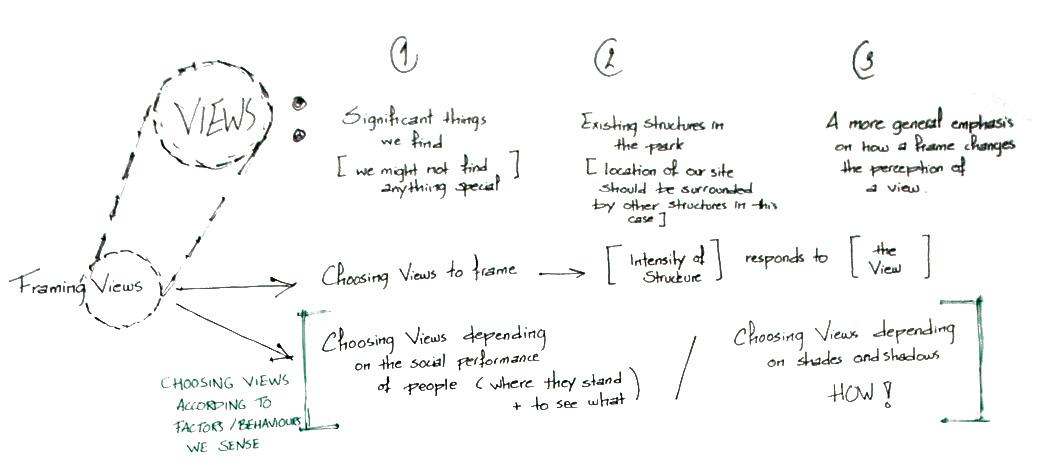 VIEWS :
① 
Significant things
we find
[ we might not find
anything special ]
②
Existing structures in
the park
[ location of our site
should be surrounded
by other structures in this
case ]
③
A more general emphasis
on how a frame changes
the perception of
a view.
Framing Views
Choosing Views to frame → [ Intensity of
Structure ] responds to [ the
View ]
Choosing Views depending
on the social performance
of people ( where they stand
+ to see what )
/
Choosing Views depending
on shades and shadows
HOW !
CHOOSING VIEWS
ACCORDING TO
FACTORS / BEHAVIOURS
WE SENSE